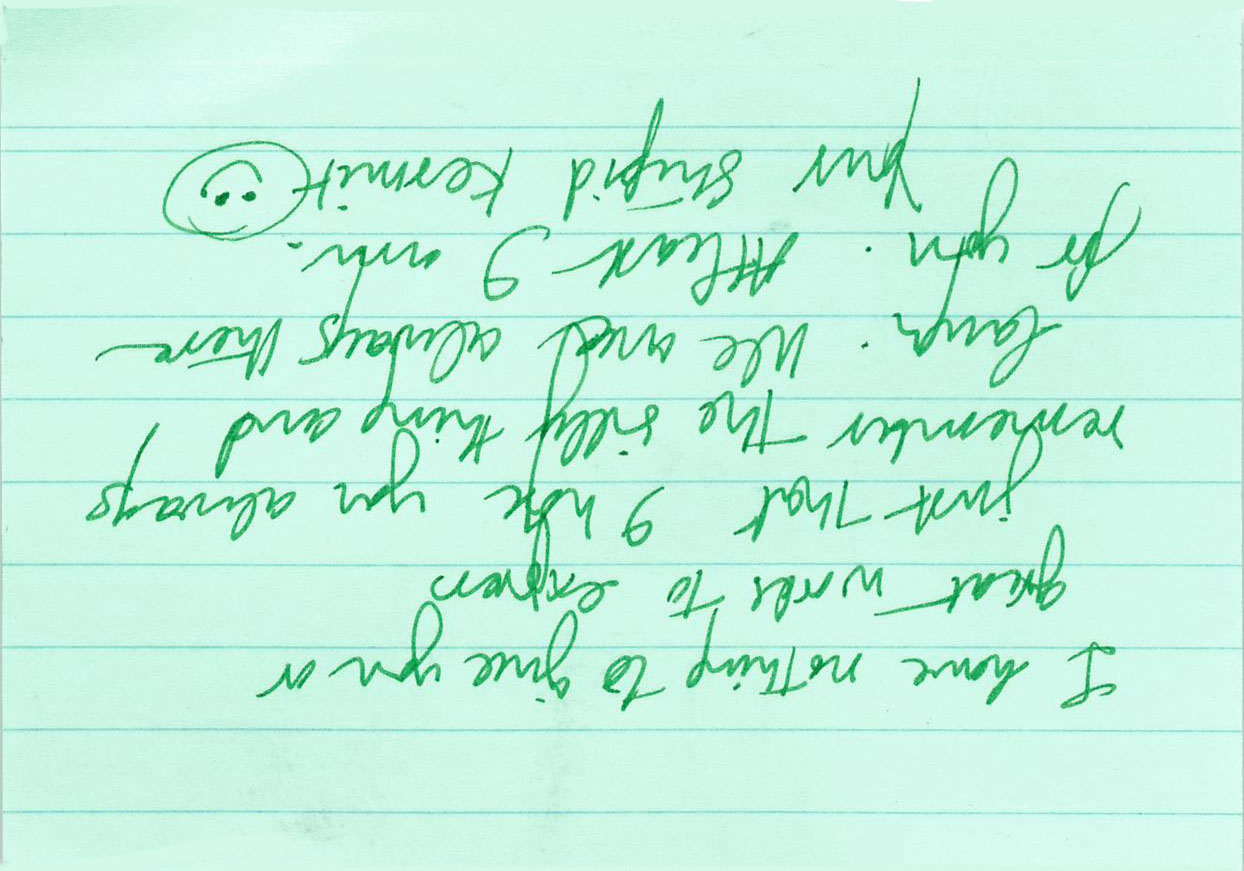 I have nothing to give you or
great words to express
just that I hope you always
remember the silly thing and
laugh. We are always there
for you. Atleast I am.
Your stupid Kermit